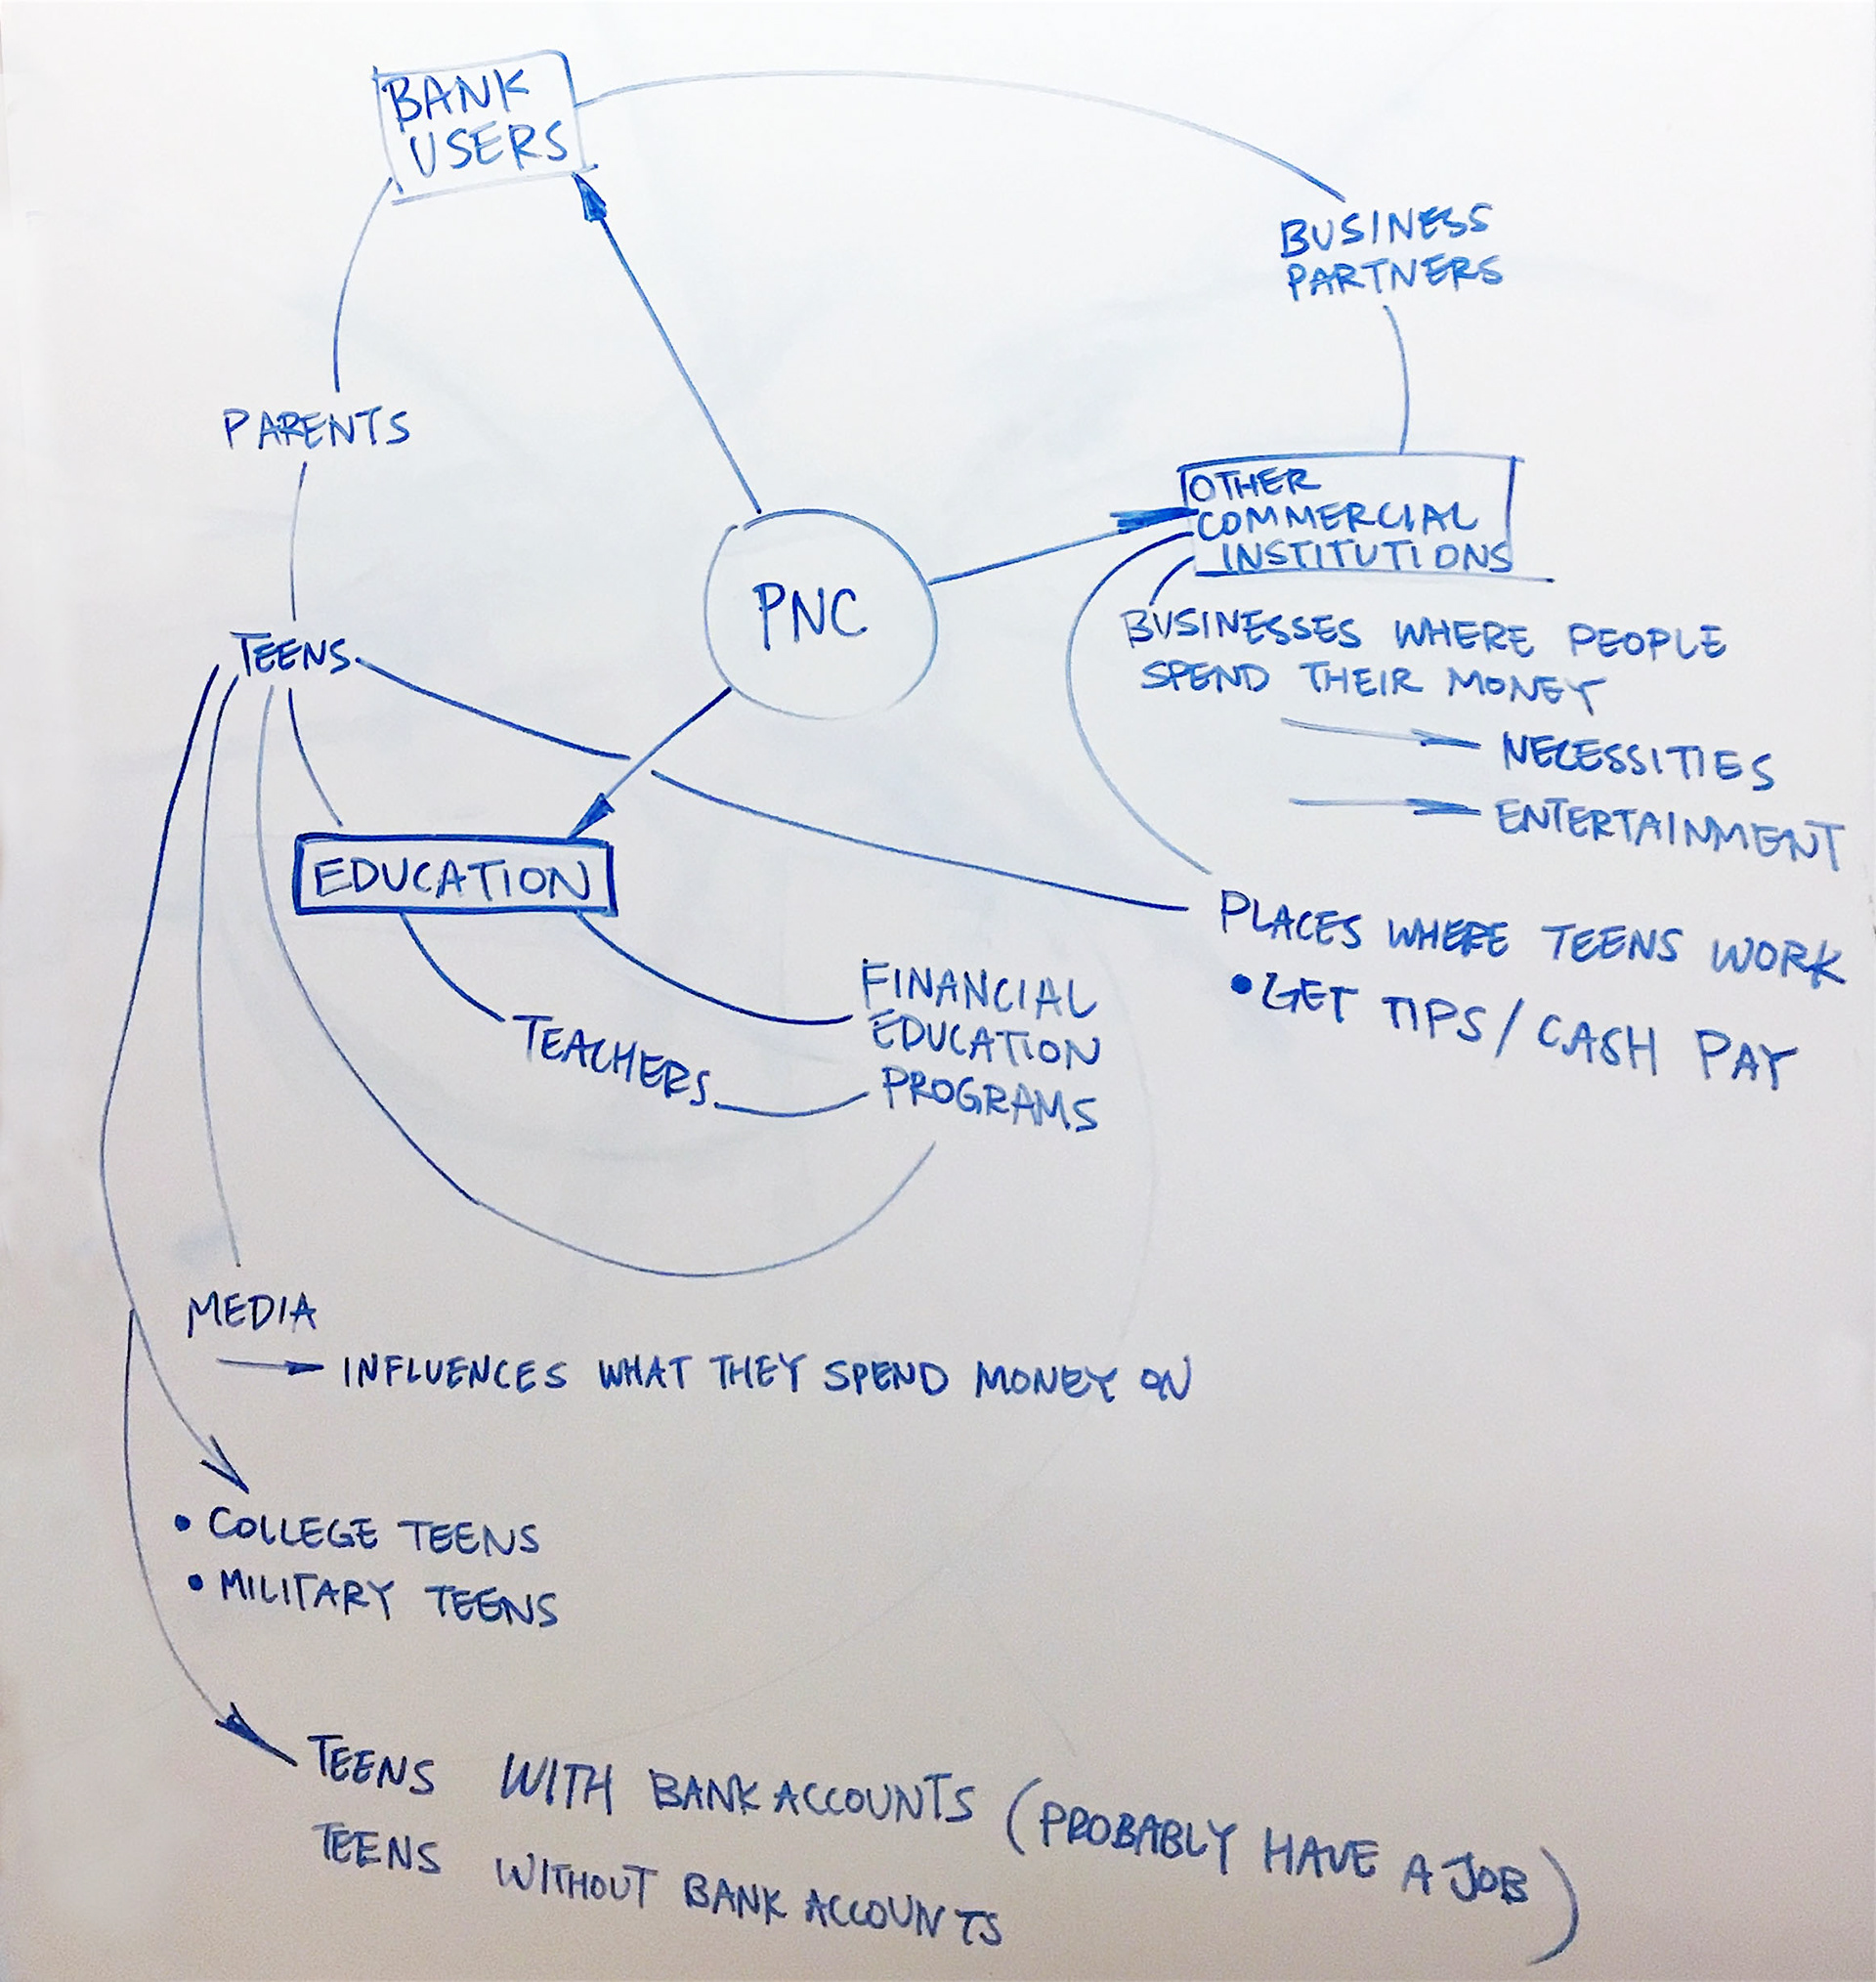 BANK
USERS
BUSINESS
PARTNERS
PARENTS
OTHER
COMMERCIAL
INSTITUTIONS
PNC
BUSINESSES WHERE PEOPLE
SPEND THEIR MONEY
TEENS
NECESSITIES
ENTERTAINMENT
EDUCATION
PLACES WHERE TEENS WORK
• GET TIPS / CASH PAY
FINANCIAL
EDUCATION
PROGRAMS
TEACHERS
MEDIA
INFLUENCES WHAT THEY SPEND MONEY ON
• COLLEGE TEENS
• MILITARY TEENS
TEENS WITH BANK ACCOUNTS (PROBABLY HAVE A JOB)
TEENS WITHOUT BANK ACCOUNTS